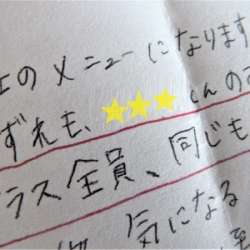 のメニューになります
ずれも、★★★くんの
ラス全員、同じも
気になる